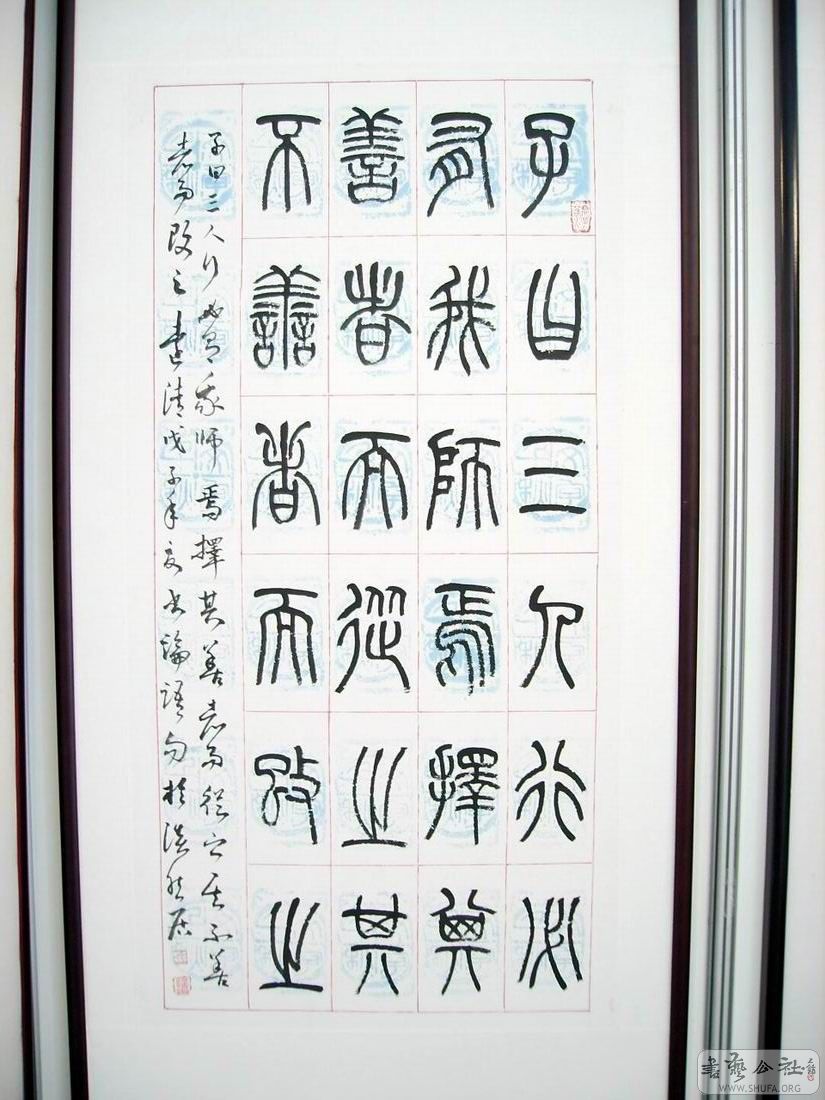 子曰三人行必
有我師焉擇其
善者而從之其
不善者而改之
子曰三人行必有我師焉擇其善者而從之其不善
者而改之建清戊子年夏书論語句於淡然居
書藝公社
WWW.SHUFA.ORG